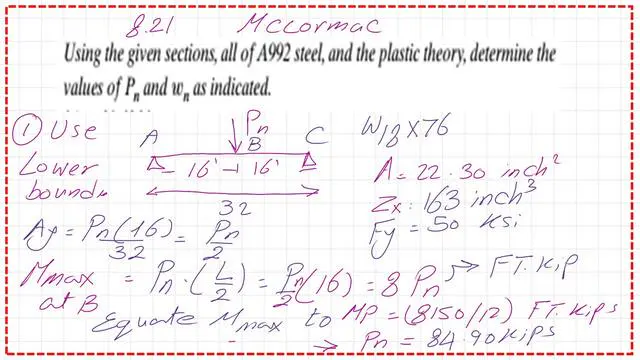 8.21 McCormac
Using the given sections, all of A992 steel, and the plastic theory, determine the
values of Pn and wn as indicated.
① Use
Lower
bound
A
Pn
B
C
16' 16'
32
W18X76
A = 22.30 inch²
Zx: 163 inch³
Fy = 50 Ksi
Ay = Pn(16)/32 = Pn/2
Mmax at B = Pn·(L/2) = Pn/2 (16) = 8 Pn → FT.Kip
Equate Mmax to MP = (8150/12) FT.Kips
→ Pn = 84.90 Kips